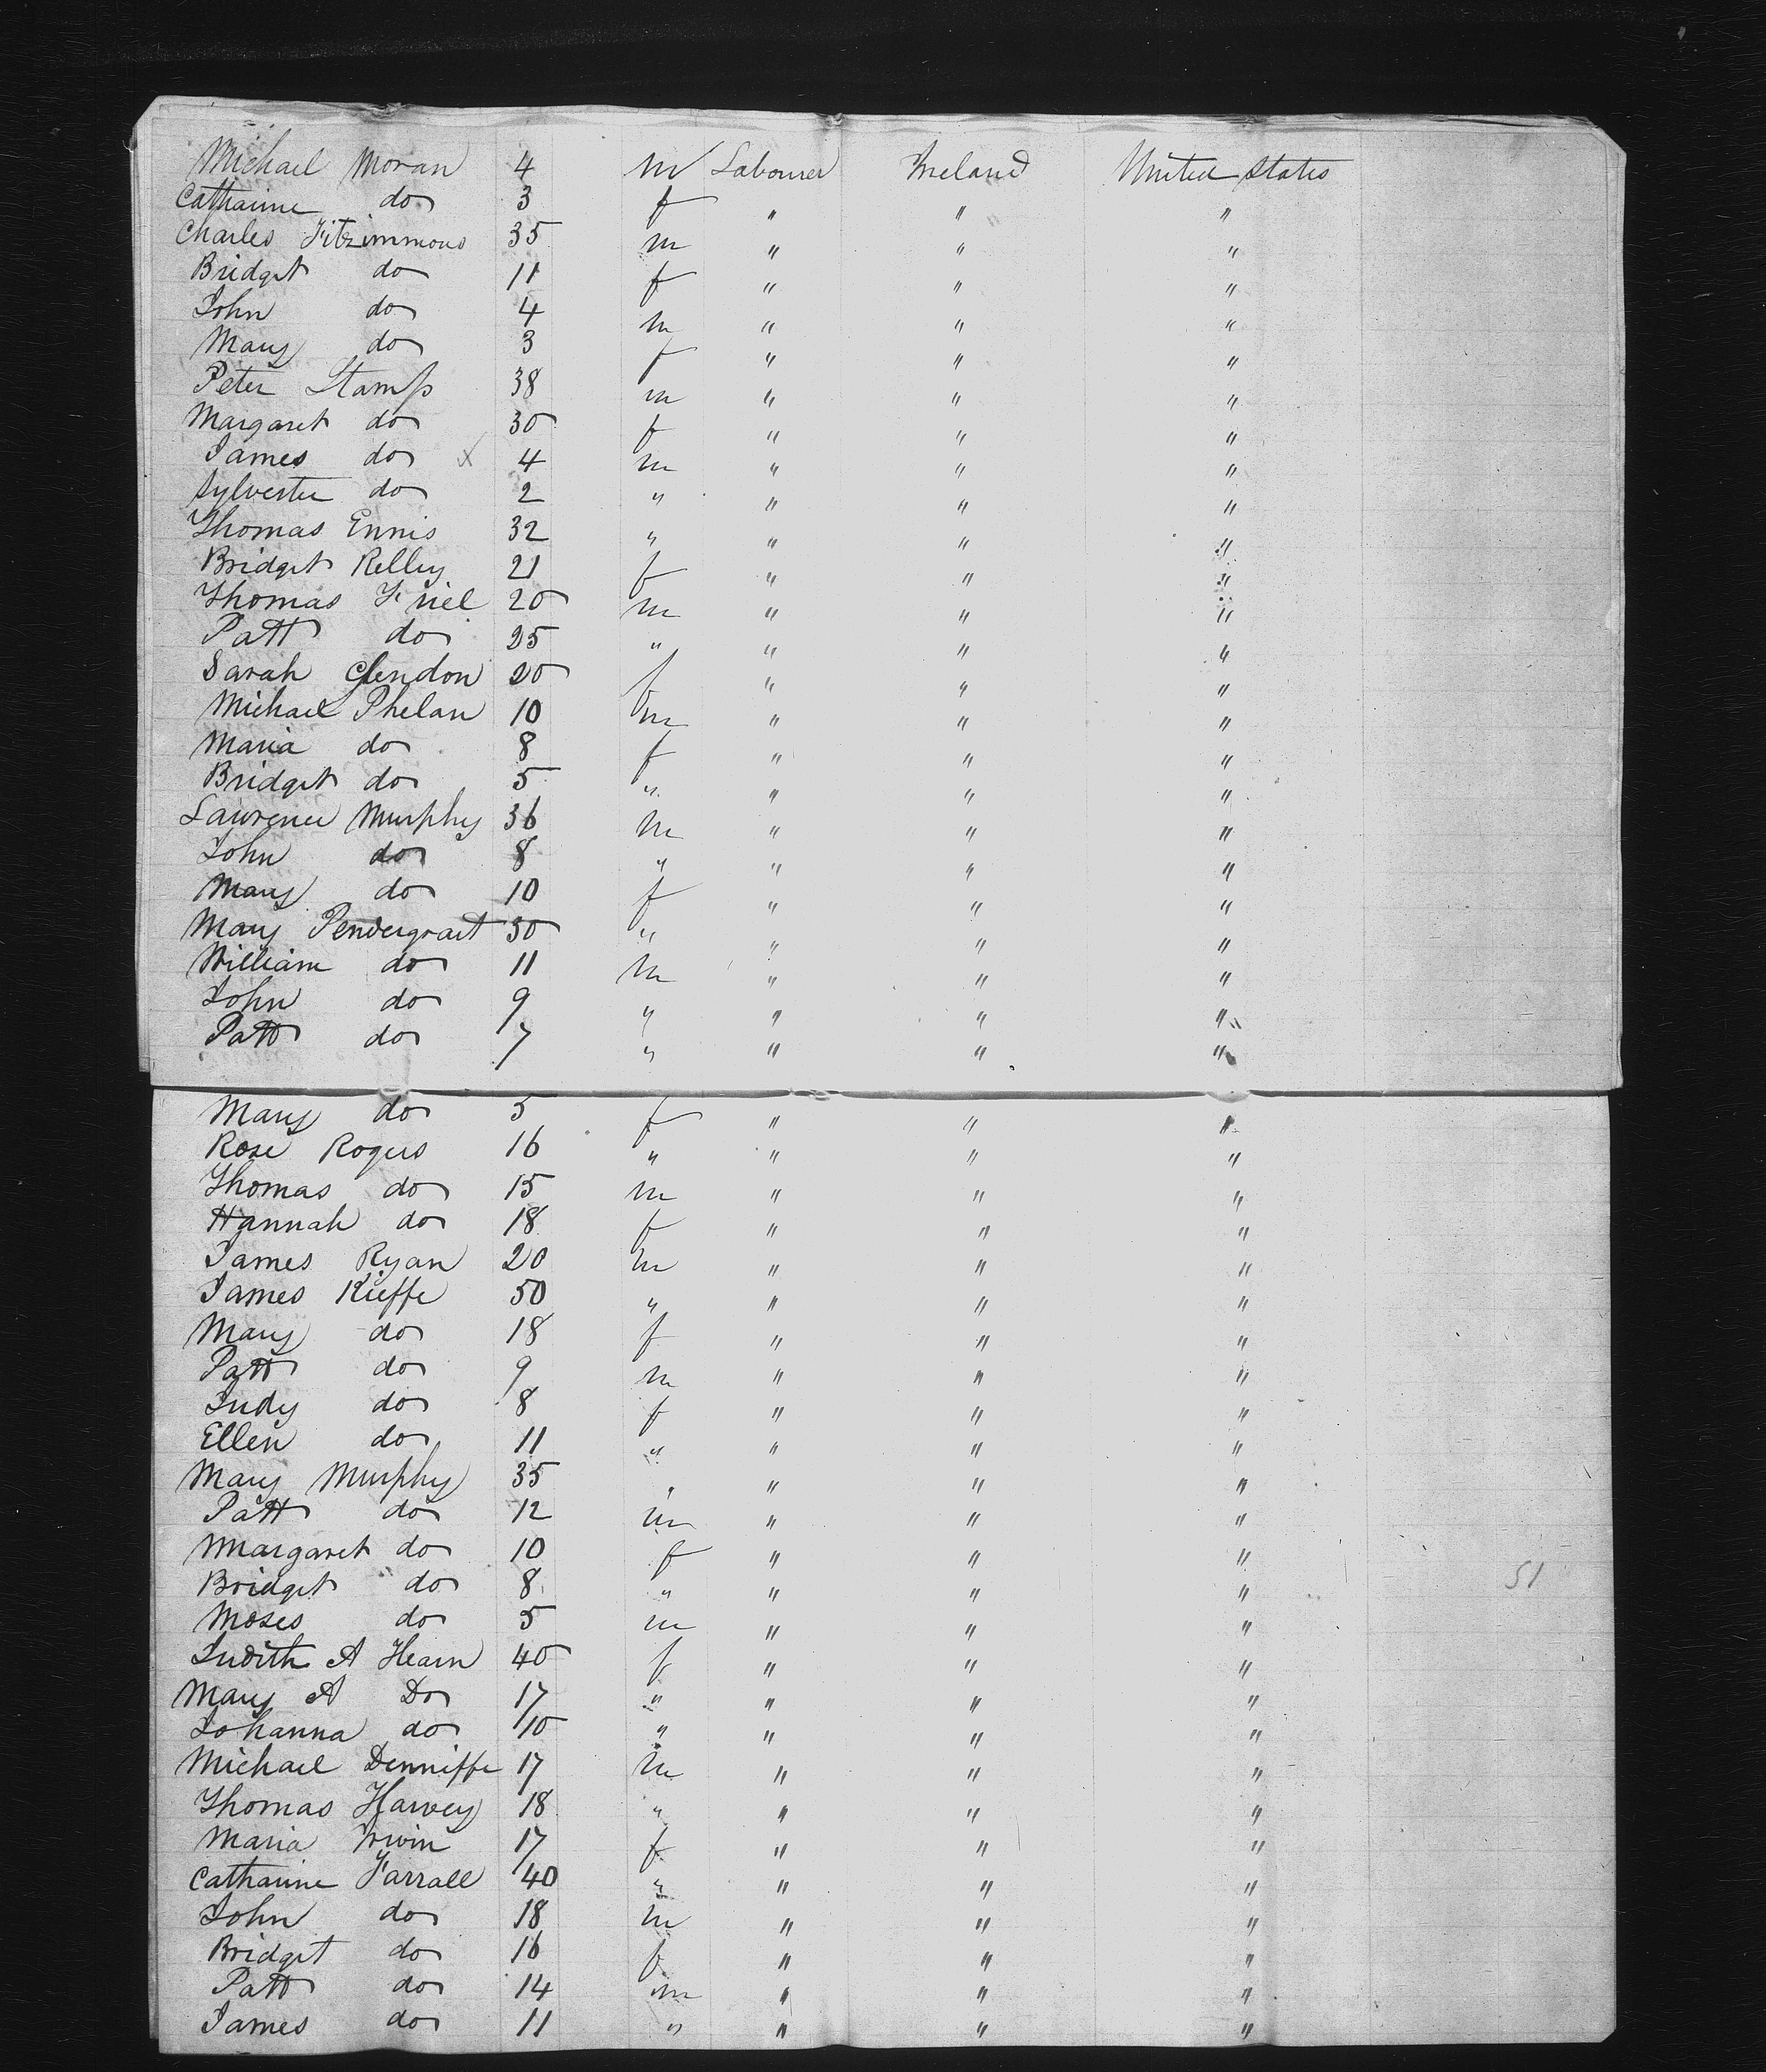 Michael Moran 4 m Labourer Ireland United States
Catharine do 3 f " " "
Charles Fitzimmons 35 m " " "
Bridget do 11 f " " "
John do 4 m " " "
Mary do 3 f " " "
Peter Stamp 38 m " " "
Margaret do 30 f " " "
James do x 4 m " " "
Sylvester do 2 " " " "
Thomas Ennis 32 " " " "
Bridget Kelley 21 f " " "
Thomas Friel 20 m " " "
Patt do 25 " " " "
Sarah Glendon 20 f " " "
Michael Phelan 10 m " " "
Maria do 8 f " " "
Bridget do 5 " " " "
Lawrence Murphy 36 m " " "
John do 8 " " " "
Mary do 10 f " " "
Mary Pendergrast 30 " " " "
William do 11 m " " "
John do 9 " " " "
Patt do 7 " " " "
Mary do 5 f " " "
Rose Rogers 16 " " " "
Thomas do 15 m " " "
Hannah do 18 f " " "
James Ryan 20 m " " "
James Kieffe 50 " " " "
Mary do 18 f " " "
Patt do 9 m " " "
Judy do 8 f " " "
Ellen do 11 " " " "
Mary Murphy 35 " " " "
Patt do 12 m " " "
Margaret do 10 f " " "
Bridget do 8 " " " "
51
Moses do 5 m " " "
Judith A Hearn 40 f " " "
Mary A Do 17 " " " "
Johanna do 10 " " " "
Michael Denniffe 17 m " " "
Thomas Harvey 18 " " " "
Maria Irwin 17 f " " "
Catharine Farrall 40 " " " "
John do 18 m " " "
Bridget do 16 f " " "
Patt do 14 m " " "
James do 11 " " " "